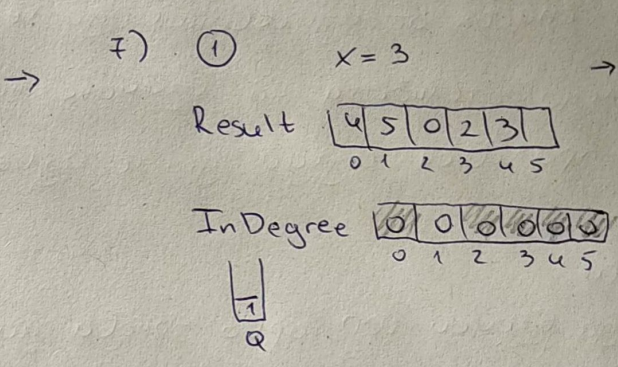 7) 1 x = 3
→ →
Result 4 5 0 2 3
0 1 2 3 4 5
InDegree 0 0 0 0 0 0
0 1 2 3 4 5
1
Q